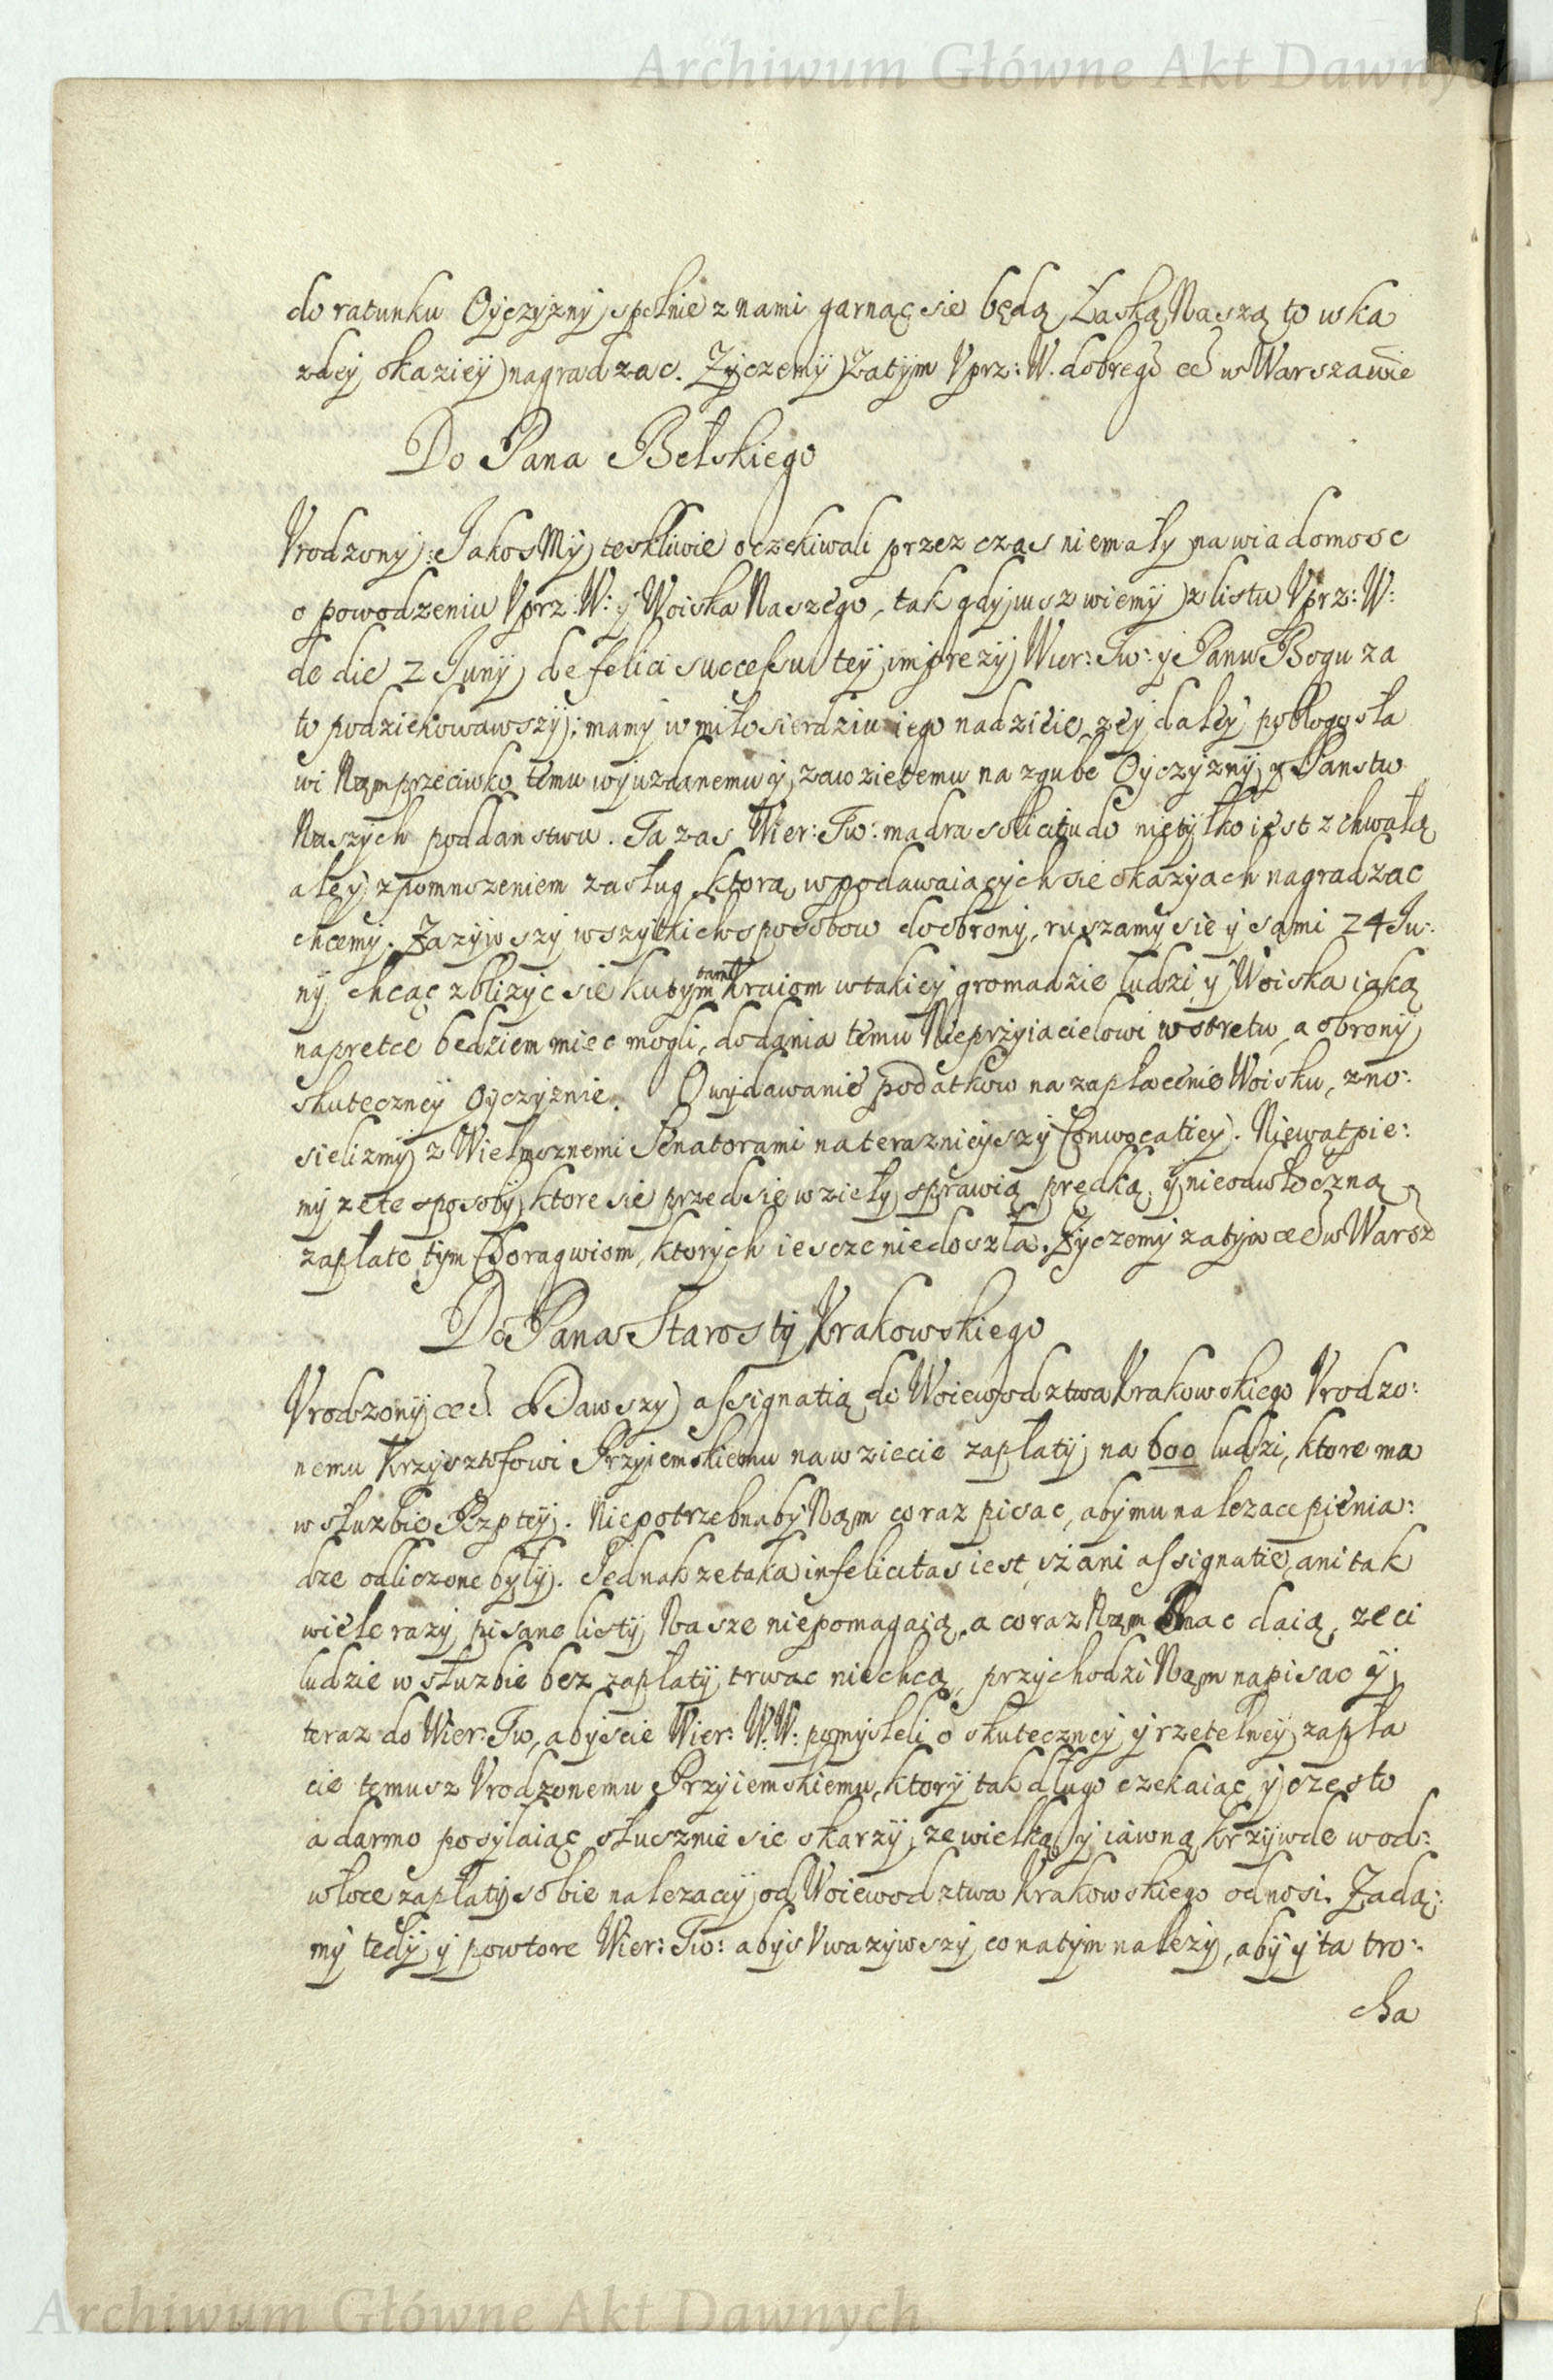 Archiwum Główne Akt Dawnych
do ratunku Oyczyzny spolnie z nami garnąc sie będą Łaską Naszą to w ka
zdey okaziey nagradzac. Zyczemy Zatym Vprz: W. dobrego etc w Warszawie
Do Pana Bełskiego
Vrodzony: JakosMy teskliwie oczekiwali przez czas niemały na wiadomosc
o powodzeniu Vprz: W: y Woiska Naszego, tak gdy iusz wiemy z listu Vprz: W:
de die 2 Juny de felici successu tey imprezy Wier: Tw: y Panu Bogu za
to podziekowawszy; mamy w miłosierdziu iego nadzieie, zey daley pobłogosła
wi Nam przeciwko temu wyuzdanemu y zawzietemu na zgube Oyczyzny y Panstw
Naszych poddanstwu. Ta zas Wier: Tw: madra sollicitudo nietylko iest z chwałą
aley z pomnozeniem zasług, ktorą w podawaiących sie okazyach nagradzac
chcemy. Zazywszy wszytkich sposobow do obrony, ruszamy sie y sami 24 Ju:
ny chcąc zblizyc sie ku tym tamt Kraiom w takiey gromadzie ludzi y Woiska iaką
napretce bedziem miec mogli, do dania temu Nieprzyiacielowi wstretu, a obrony
skuteczney Oyczyznie. O wydawanie podatkow na zapłacenie Woisku, zno:
sielizmy z Wielmoznemi Senatorami na teraznieyszy Convocatiey. Niewatpie:
my ze te sposoby ktore sie przedsiewzieły sprawią prędką, y nieodwłoczną
zapłate tym Choragwiom, ktorych iescze niedoszła. Zyczemy zatym etc w Warsz
Do Pana Starosty Krakowskiego
Vrodzony etc. Dawszy assignatią do Woiewodztwa Krakowskiego Vrodzo:
nemu Krzysztofowi Przyiemskiemu na wziecie zapłaty na 600 ludzi, ktore ma
w słuzbie Rzptey. Niepotrzebnaby Nam coraz pisac, aby mu nalezace pienia:
dze odliczone były. Jednak ze taka infelicitas iest, iż ani assignatie, ani tak
wiele razy pisane listy Nasze niepomagaią, a coraz Nam znac daią, ze ci
ludzie w słuzbie bez zapłaty trwac niechcą, przychodzi Nam napisac y
teraz do Wier: Tw, abyscie Wier: W: W: pomysleli o skuteczney y rzetelney zapła
cie temusz Vrodzonemu Przyiemskiemu, ktory tak długo czekaiąc y często
a darmo posylaiąc słusznie sie skarzy, ze wielką y iawną krzywde w od:
włoce zapłaty sobie nalezacey od Woiewodztwa Krakowskiego odnosi. Żąda:
my tedy y powtore Wier: Tw: abys Vwazywszy co na tym nalezy, aby y ta tro:
cha
Archiwum Główne Akt Dawnych